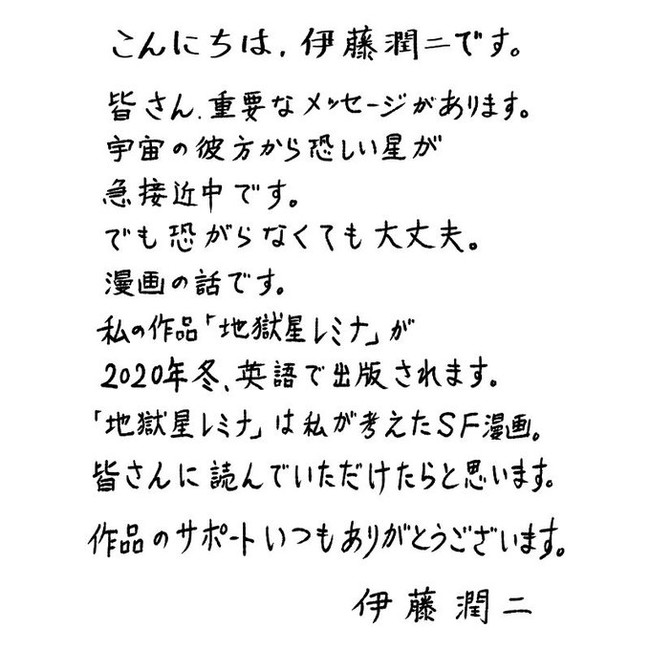 こんにちは、伊藤潤二です。
皆さん、重要なメッセージがあります。
宇宙の彼方から恐しい星が
急接近中です。
でも恐がらなくても大丈夫。
漫画の話です。
私の作品「地獄星レミナ」が
2020年冬、英語で出版されます。
「地獄星レミナ」は私が考えたSF漫画。
皆さんに読んでいただけたらと思います。
作品のサポートいつもありがとうございます。
伊藤潤二